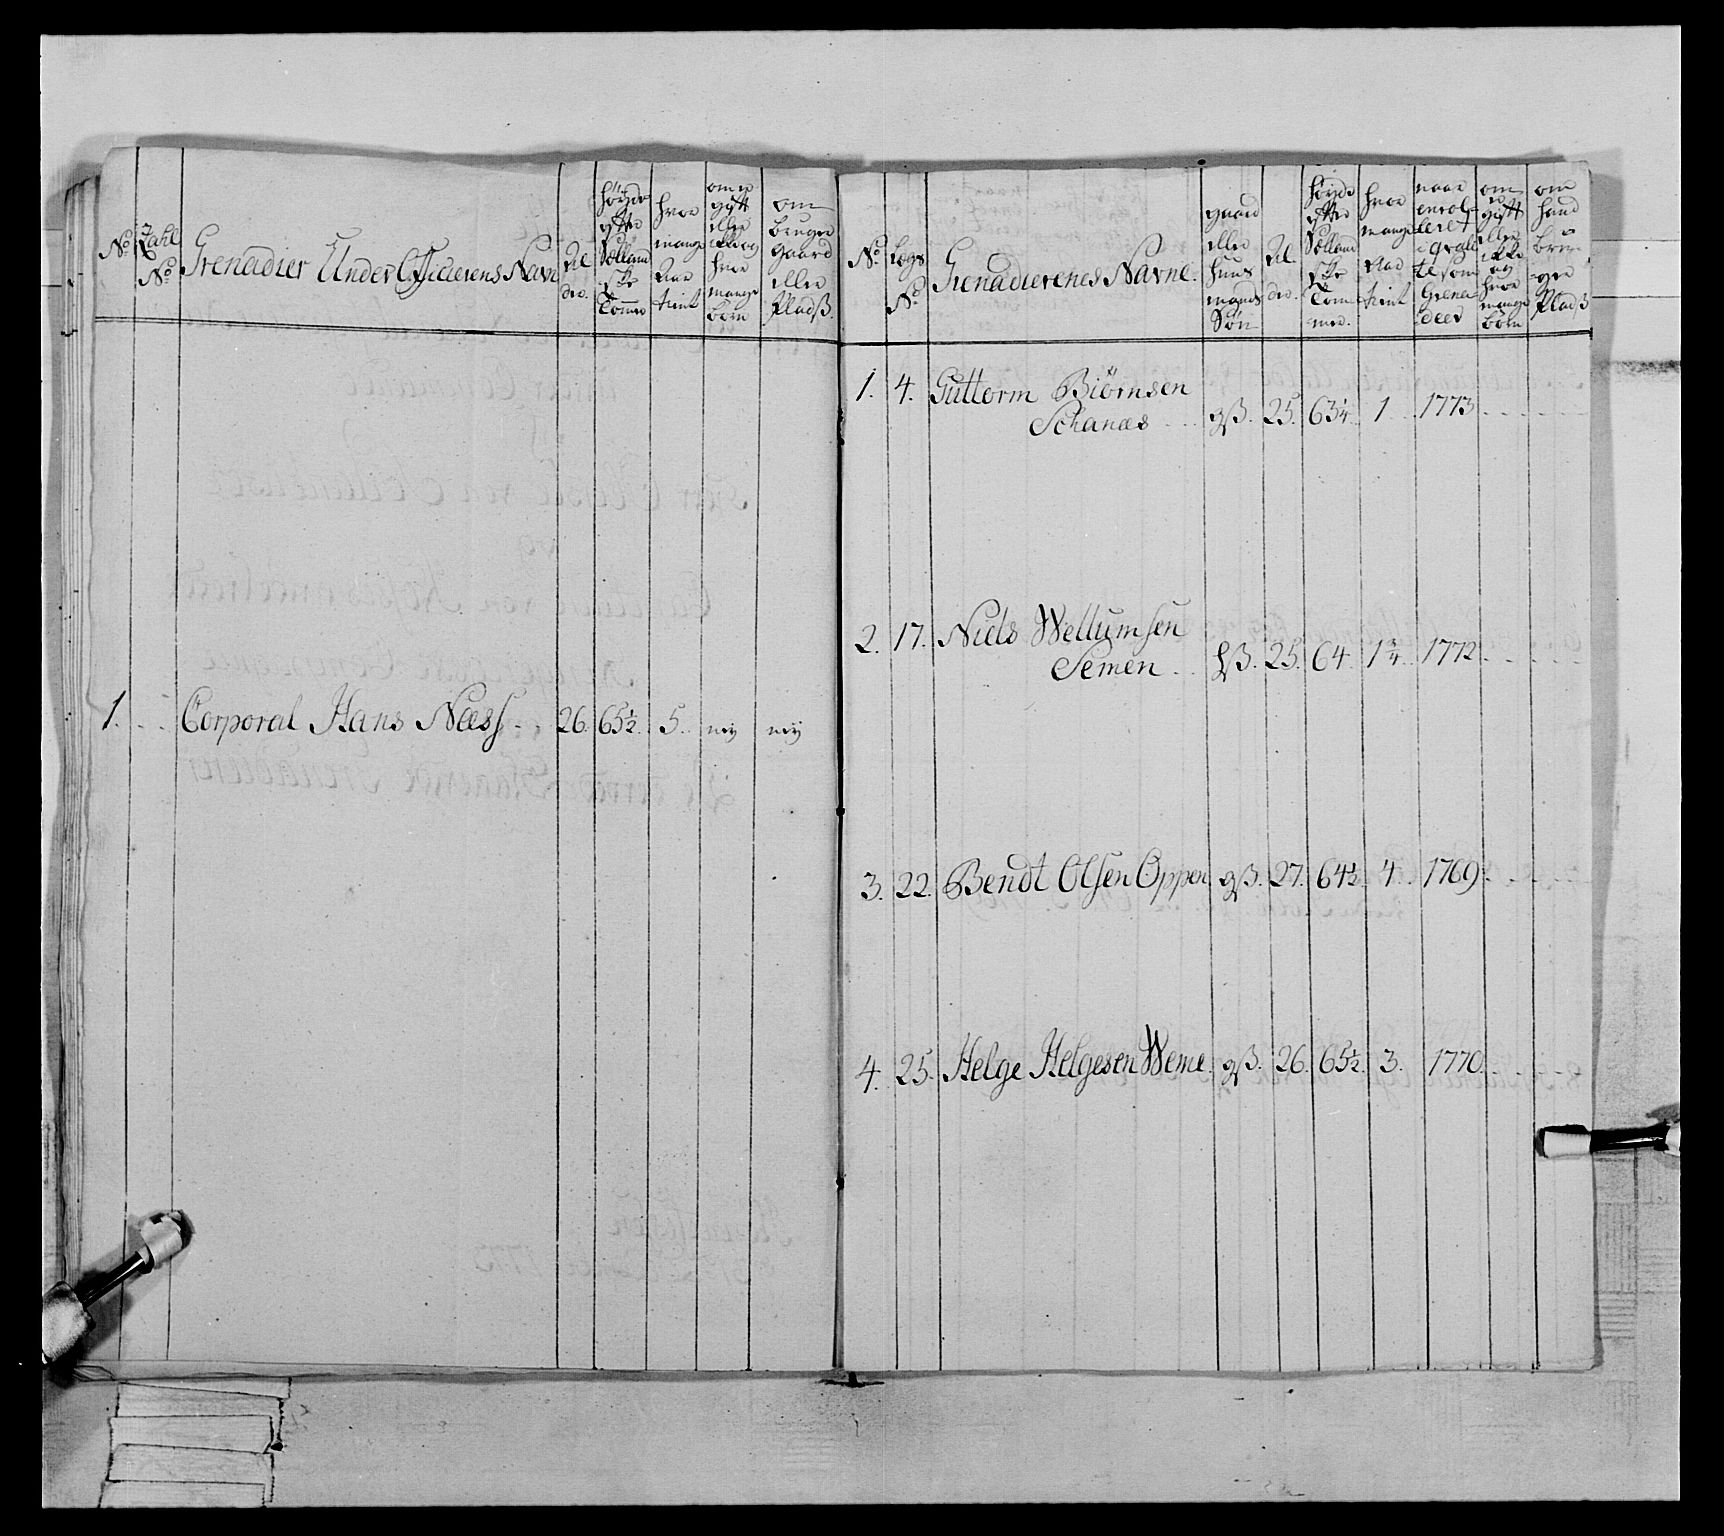 No
Zahl No
Grenadier Under Officierens Navn
Al der.
höyde efter Sælland ske Tomer
hvor mange Aar tient
om er gift eller ikke og hvor mange börn
om bruger gaard eller Pladß.
1. Corporal Hans Næss 26. 65½. 5. ney ney
No
Lægs No
Grenadierenes Navne.
gaard eller huus mands Sön
Al der.
höyde efter Sælland ske Tom mer.
hvor mange Aar tient
naar enrol leret i qvali te som Grena deer
om gift eller ikke og hvor mange börn
om hand bru ger Pladß
1. 4. Guttorm Biörnsen
Schanes gß. 25. 63¼. 1. 1773
2. 17. Niels Wellumsen
Semen hß. 25. 64. 1¾. 1772
3. 22. Bendt Olsen Oppen gß. 27. 64½. 4. 1769
4. 25. Helge Helgesen Weme gß. 26. 65½. 3. 1770